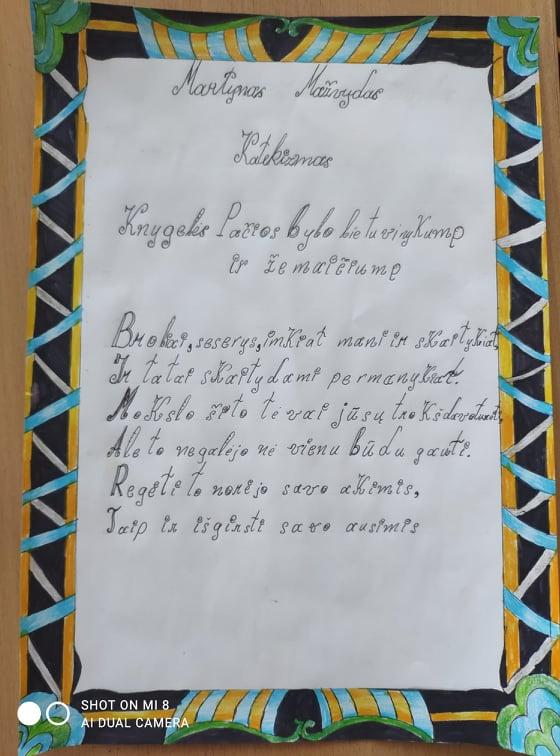 Martynas Mažvydas
Katekizmas
Knygelės Pačios bylo lietuvinykump
ir žemaičiump
Broliai, seserys, imkiat mani ir skaitykiat,
Ir tatai skaitydami permanykiat.
Mokslo šito tėvai jūsų trokšdavo turėti,
Ale to negalėjo nė vienu būdu gauti.
Regėti to norėjo savo akimis,
Taip ir išgirsti savo ausimis
SHOT ON MI 8
AI DUAL CAMERA